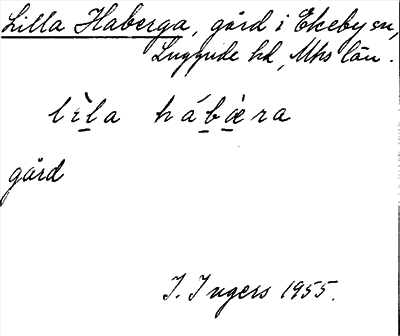 Lilla Haberga, gård i Ekeby sn,
Luggude hd, Mhs län.
lìl̠a háb̠æ̀ra
gård
I. Ingers 1955.